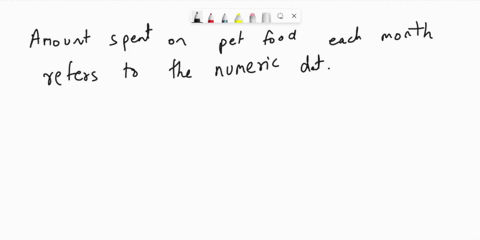 Amount spent on pet food each month
refers to the numeric dat.